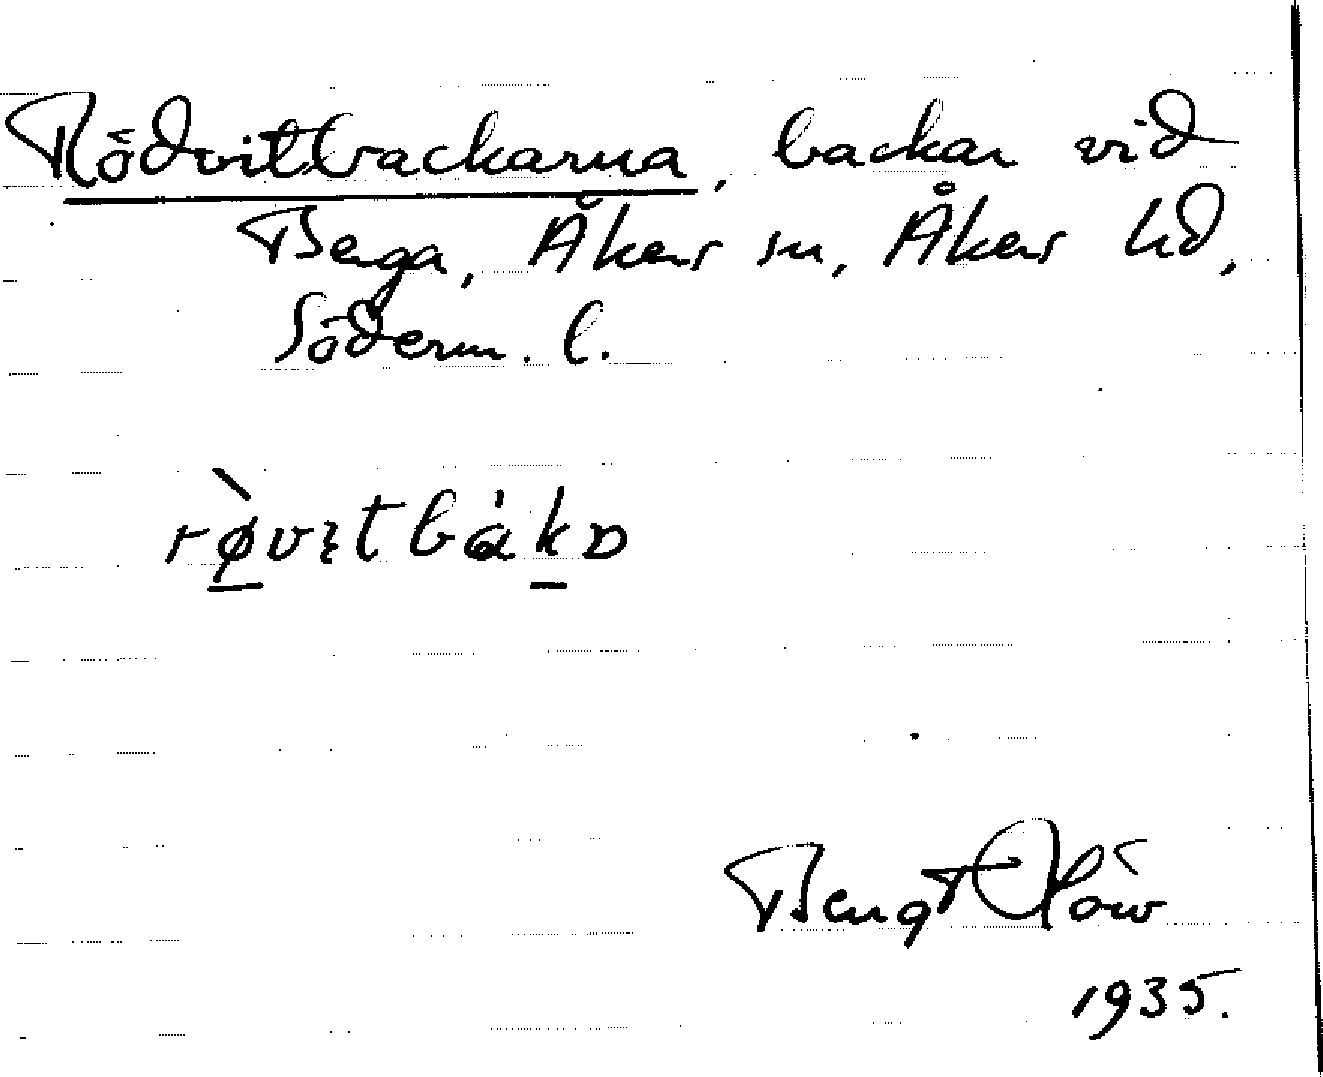 Rödvitbackarna, backar vid
Berga, Åkers sn, Åkers hd,
Söderm. l.
rø̀vɩtbákɒ
Bengt
1935.